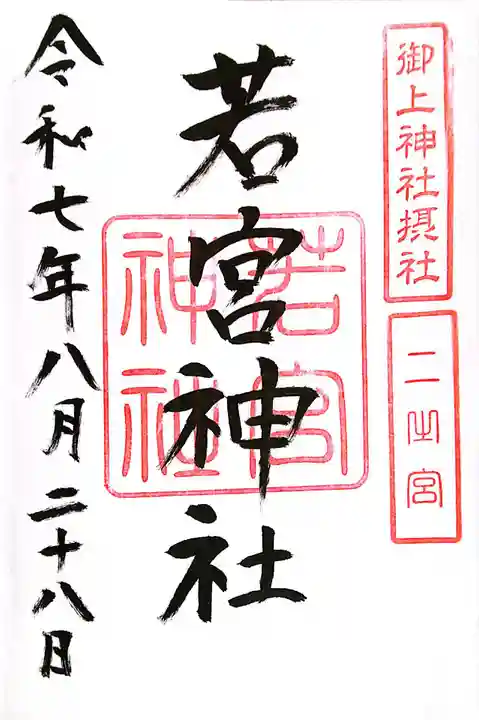 御上神社摂社
二之宮
若宮神社
若宮神社
令和七年八月二十八日